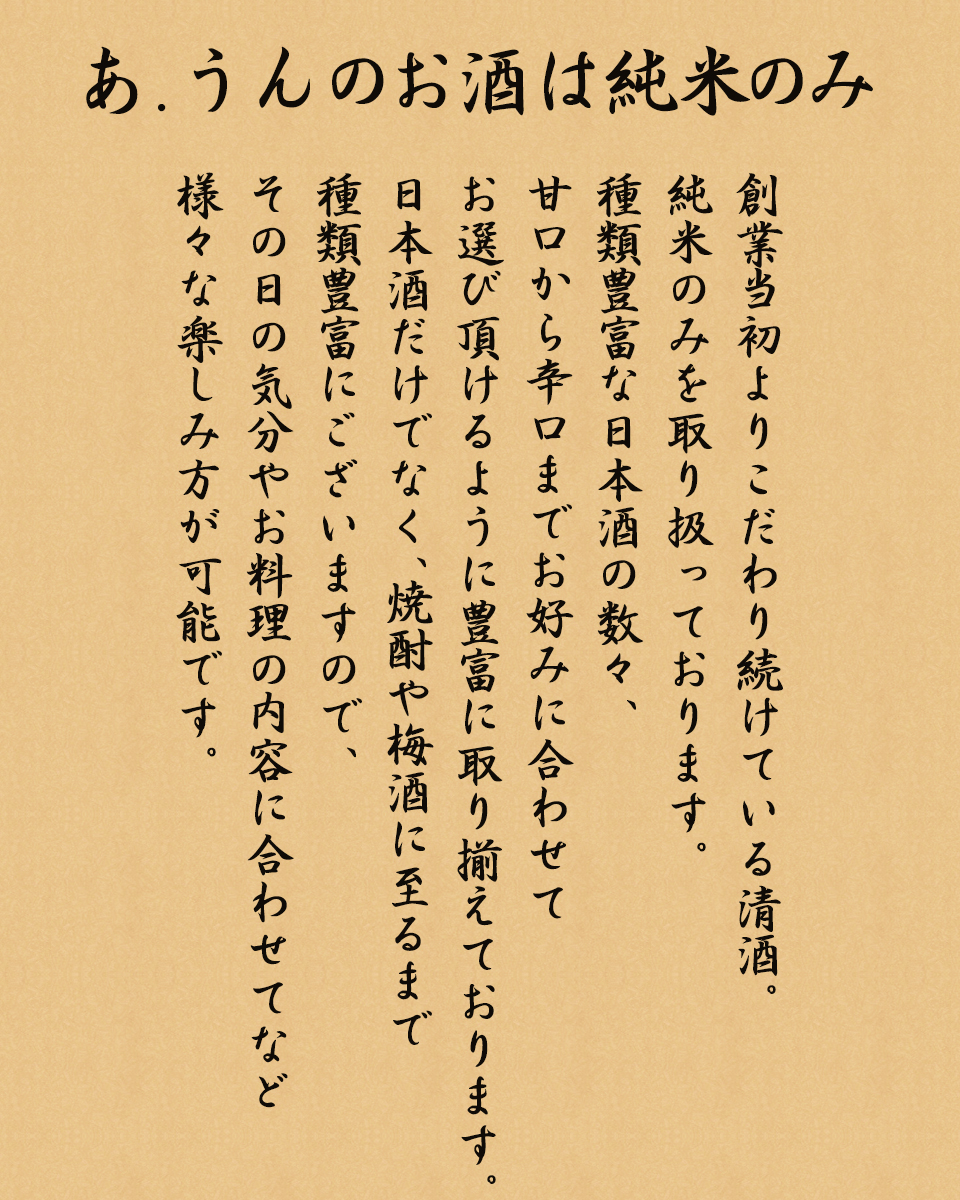 あ.うんのお酒は純米のみ
創業当初よりこだわり続けている清酒。
純米のみを取り扱っております。
種類豊富な日本酒の数々、
甘口から辛口までお好みに合わせて
お選び頂けるように豊富に取り揃えております。
日本酒だけでなく、焼酎や梅酒に至るまで
種類豊富にございますので、
その日の気分やお料理の内容に合わせてなど
様々な楽しみ方が可能です。